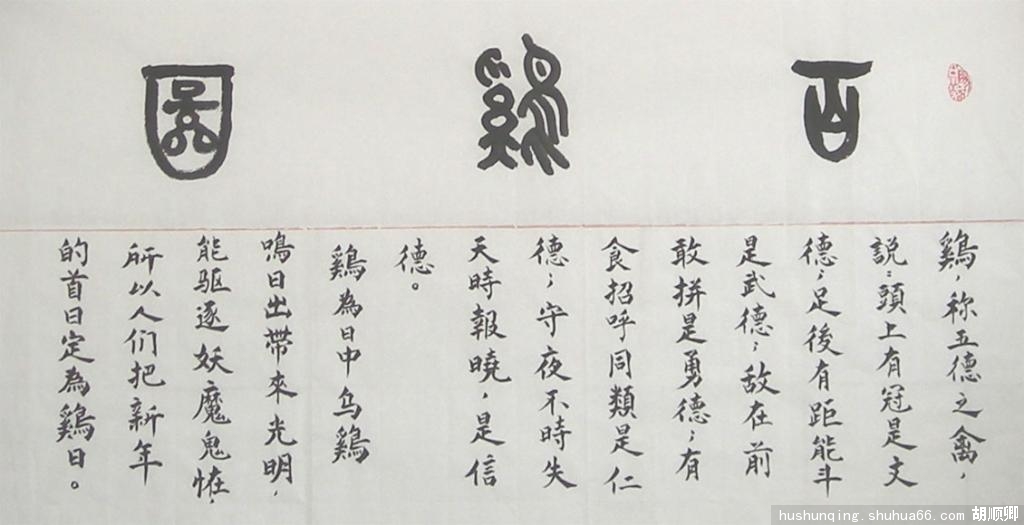 百鷄圖
鷄，称五德之禽，
説：頭上有冠是文
德；足後有距能斗
是武德；敌在前
敢拼是勇德；有
食招呼同類是仁
德；守夜不時失
天時報曉，是信
德。
鷄為日中乌鷄
鳴日出带來光明，
能驱逐妖魔鬼恠，
所以人们把新年
的首日定為鷄日。
hushunqing.shuhua66.com 胡顺卿